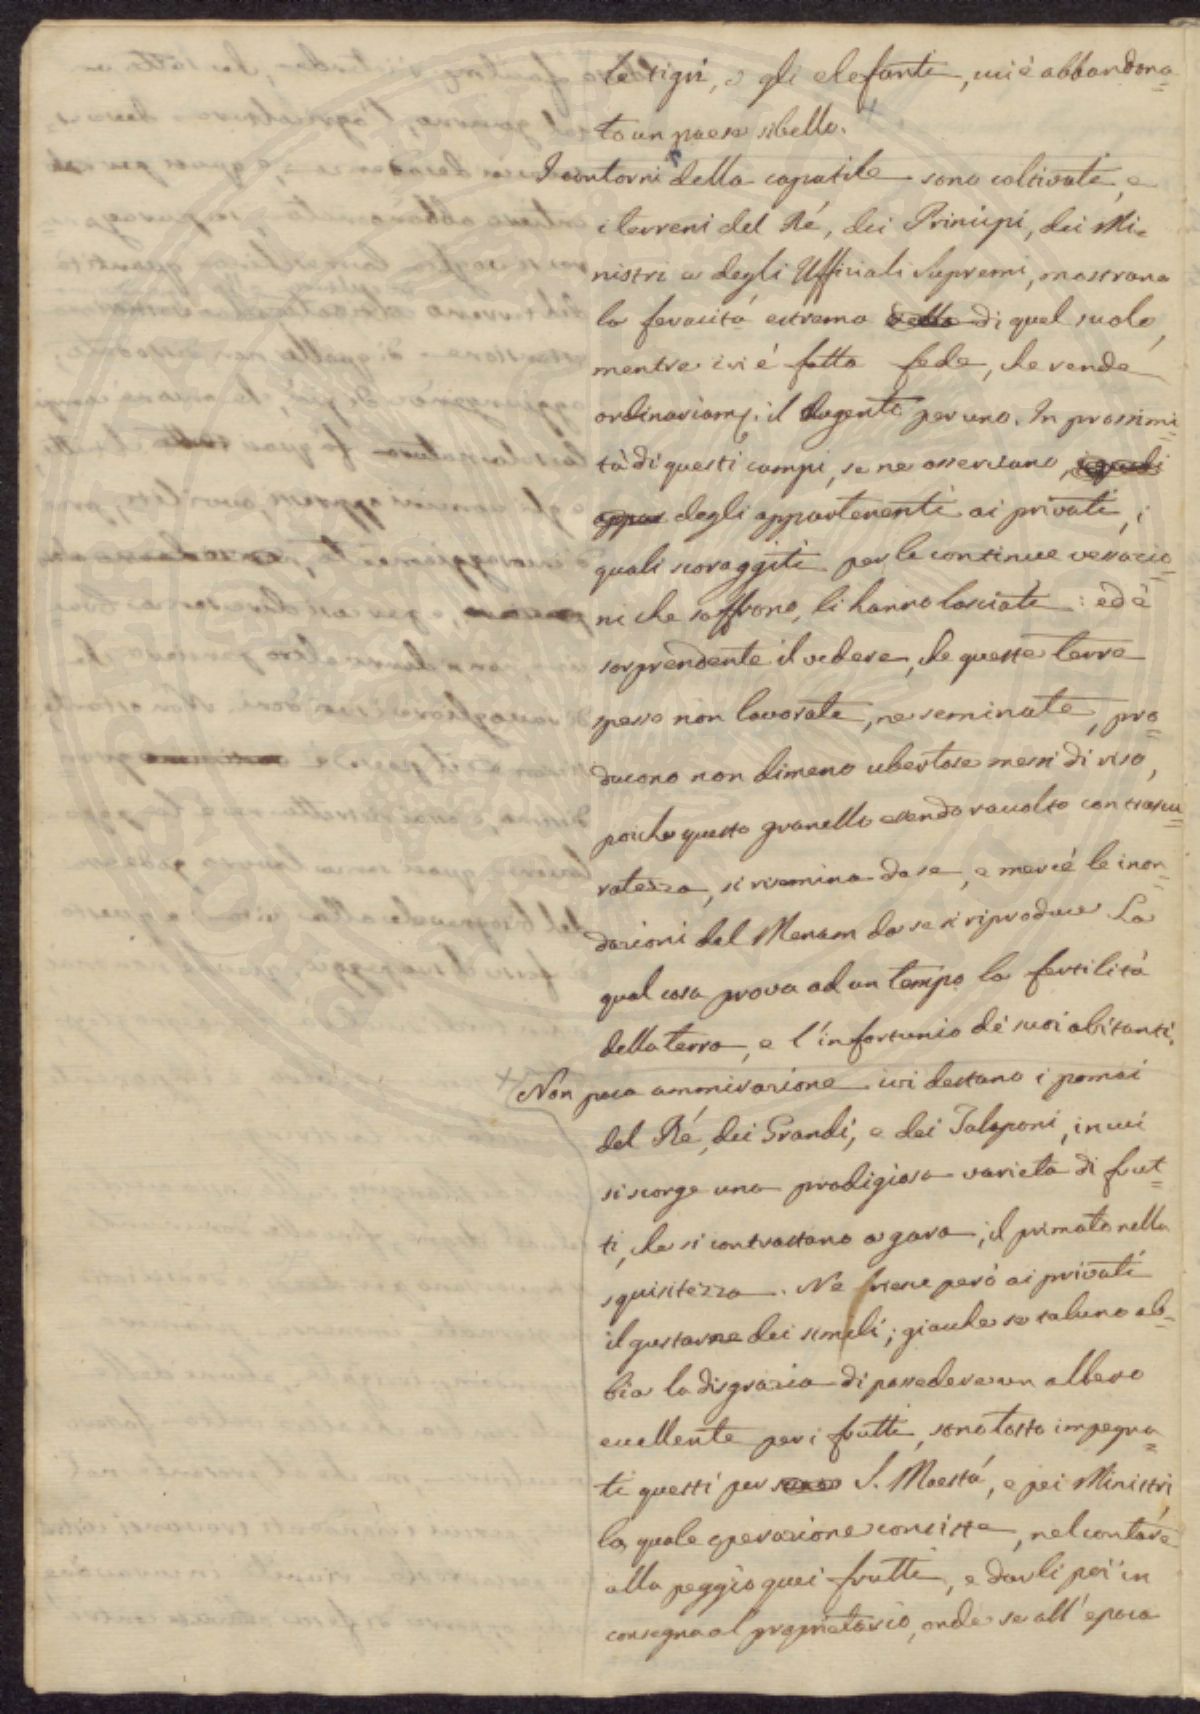 le tigri, e gli elefanti, cui è abbandona=
to un paese sì bello.
I contorni della capitale sono coltivati, e
i terreni del Ré, dei Principi, dei Mi=
nistri e degli Ufficiali Supremi, mostrano
la feracitá estrema della di quel suolo,
mentre ivi è fatto fede, che rende
ordinariam. il dugento per uno. In prossimi=
tà di questi campi, se ne osservano, i quali
appar degli appartenenti ai privati, i
quali scoraggiti per le continue vessazio=
ni che soffrono, li hanno lasciati: ed è
sorprendente il vedere, che queste terre
spesso non lavorate, ne seminate, pro=
ducono non dimeno ubertose messi di riso,
poiche questo granello essendo raccolto con trascu=
ratezza, si risemina da se, e mercè le inon=
dazioni del Menam da se si riproduce. La
qual cosa prova ad un tempo la fertilità
della terra, e l'infortunio de' suoi abitanti.
+ Non poca ammirazione ivi destano i pomai
del Ré, dei Grandi, e dei Talaponi, in cui
si scorge una prodigiosa varietà di frut=
ti, che si contrastano a gara, il primato nella
squisitezza. Ne viene però ai privati
il gustarne dei simili; giacche se taluno ab=
bia la disgrazia di possedere un albero
eccellente per i frutti, sono tosto impegna=
ti questi per S. Maestá, e pei Ministri,
la quale operazione consiste, nel contare
alla peggio quei frutti, e darli poi in
consegna al proprietario, onde se all'epoca